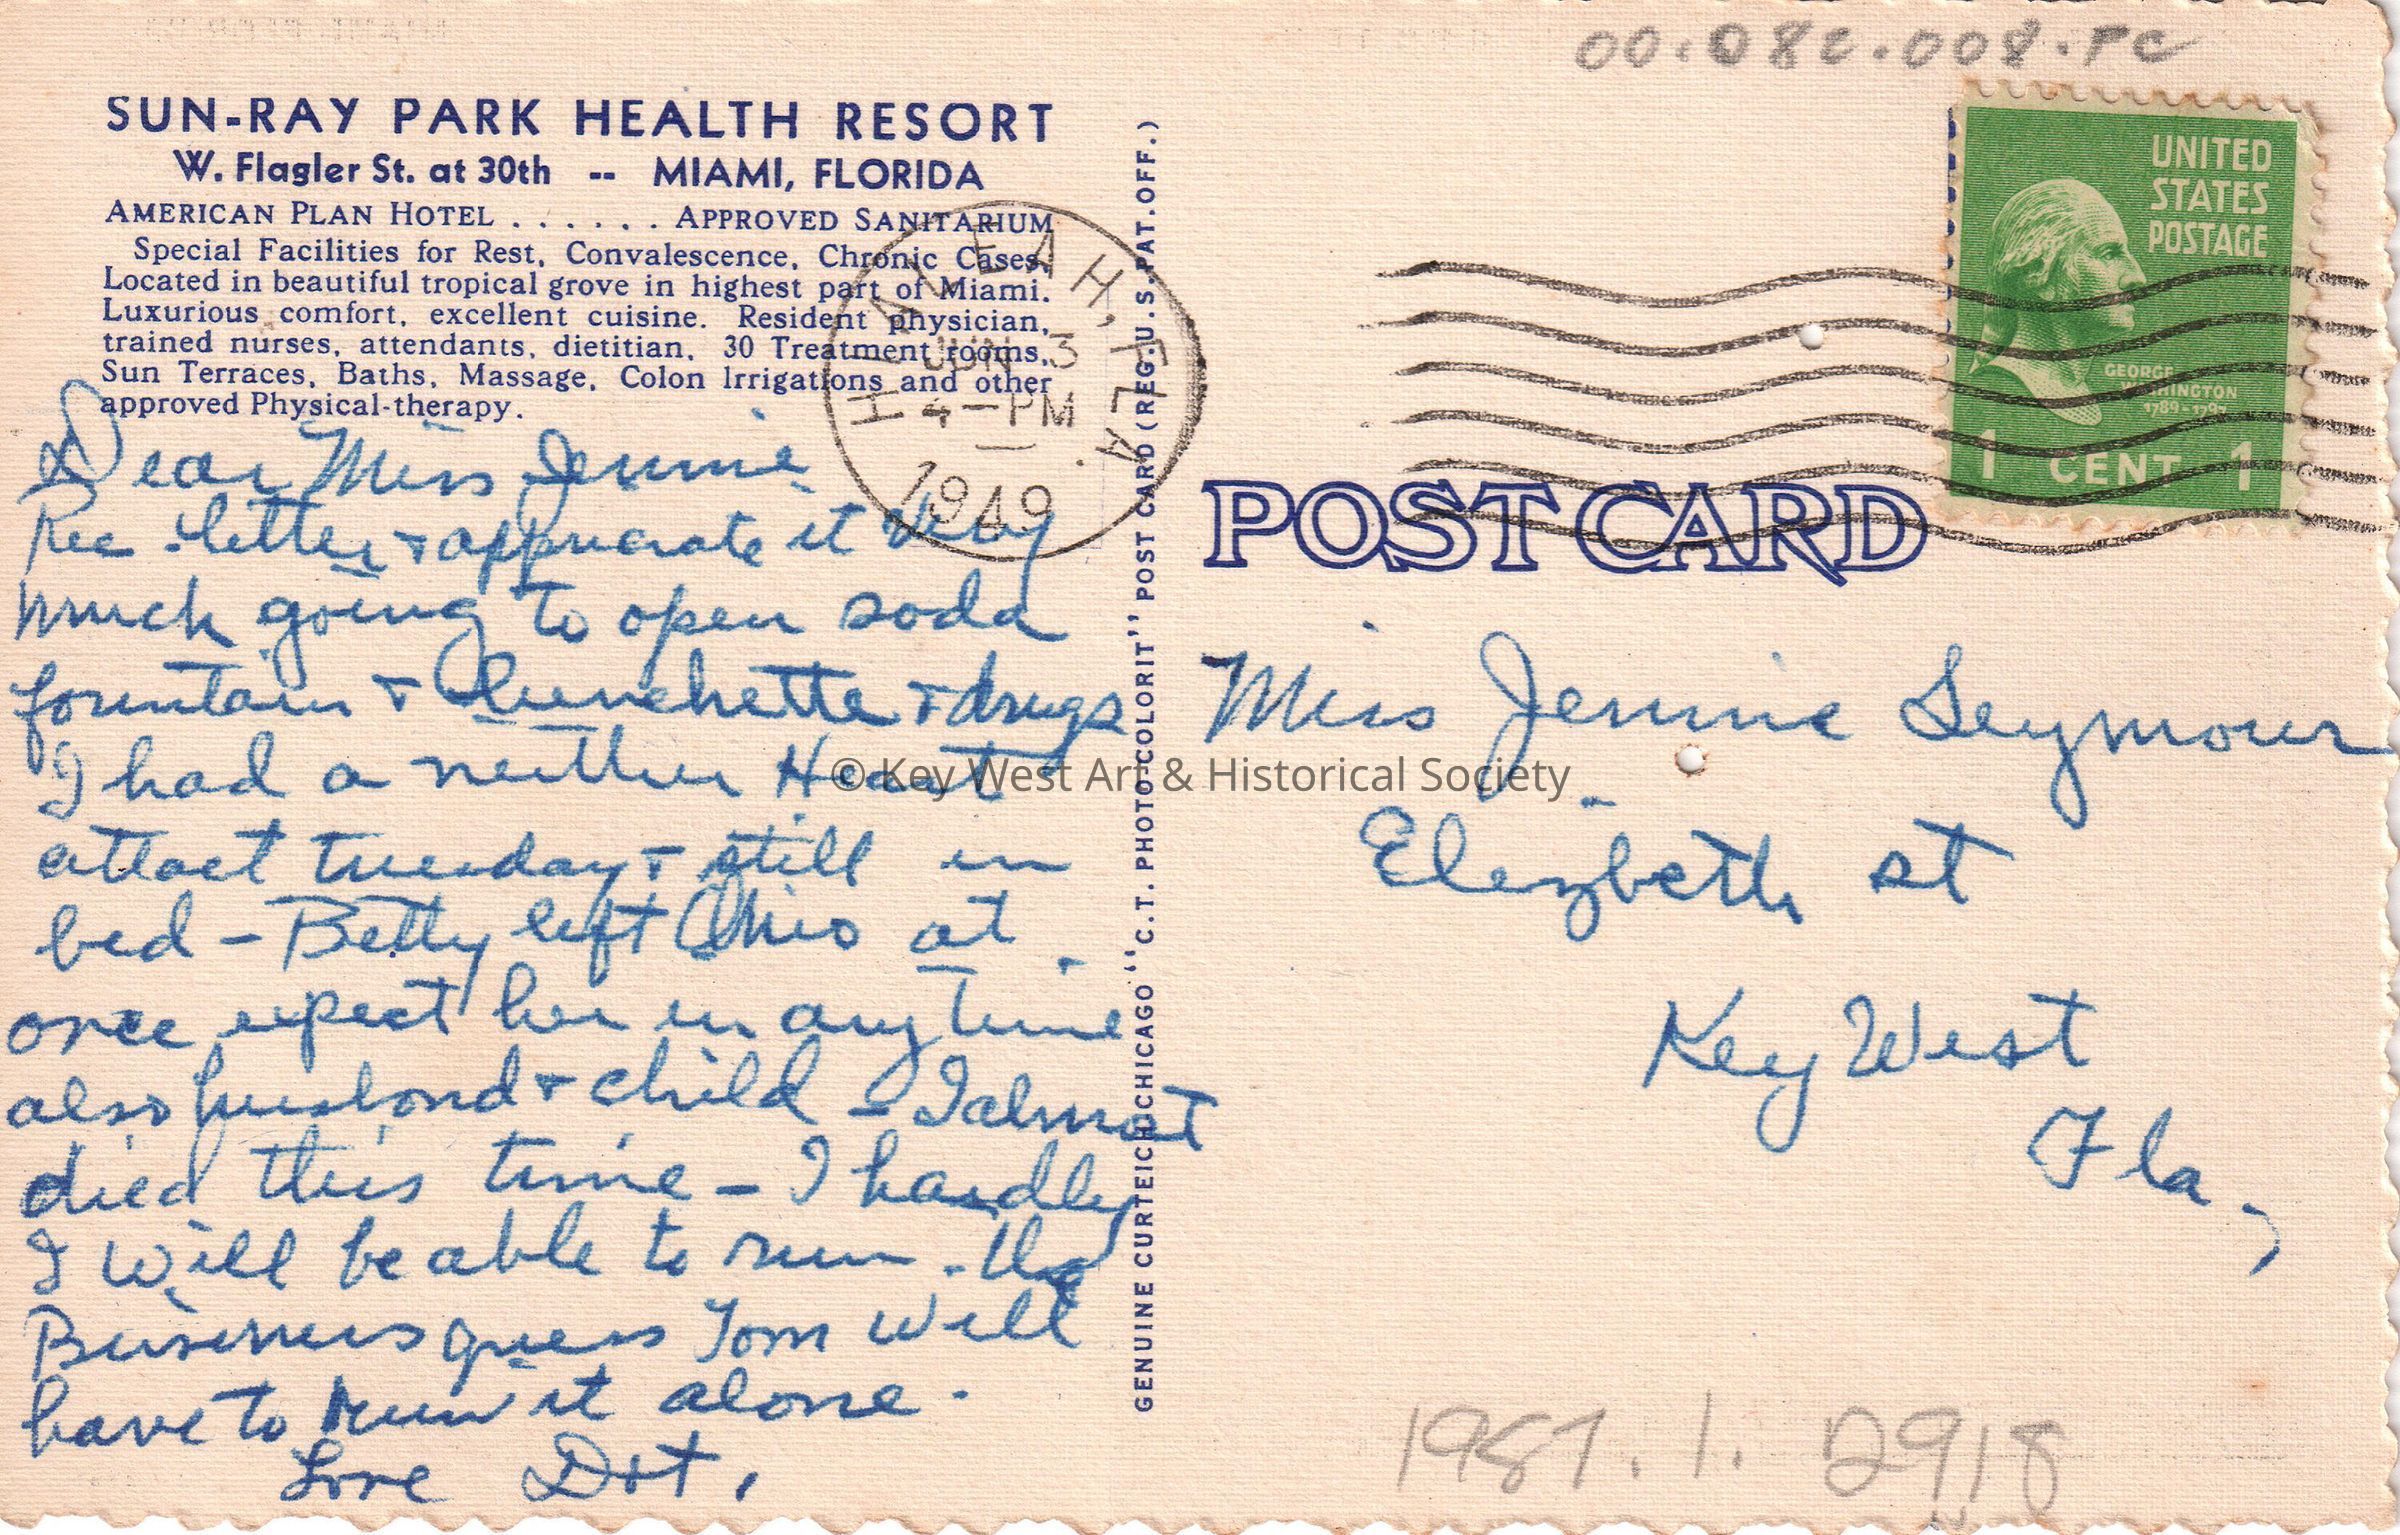 00.082.008.PC
SUN-RAY PARK HEALTH RESORT
W. Flagler St. at 30th -- MIAMI, FLORIDA
AMERICAN PLAN HOTEL . . . . . . APPROVED SANITARIUM
Special Facilities for Rest, Convalescence, Chronic Cases.
Located in beautiful tropical grove in highest part of Miami.
Luxurious comfort, excellent cuisine. Resident physician,
trained nurses, attendants, dietitian, 30 Treatment rooms,
Sun Terraces, Baths, Massage, Colon Irrigations and other
approved Physical-therapy.
Dear Miss Jennie
Rec. letter + appreciate it Very
much going to open soda
fountain + Lunchette + drugs
I had a neither Heart
attact tuesday + still in
bed - Betty left Ohio at
once expect her in any time
also husband + child - I almost
died this time - I hardly
I will be able to run. the
Business guess Tom will
have to run it alone.
Love Dot,
HIALEAH, FLA.
JUN 3
4-PM
1949
GENUINE CURTEICH-CHICAGO "C.T. PHOTO-COLORIT" POST CARD (REG. U.S. PAT. OFF.)
UNITED
STATES
POSTAGE
GEORGE
WASHINGTON
1789-1797
1 CENT 1
POST CARD
Miss Jennie Seymour
Elezbeth st
Key West
Fla,
© Key West Art & Historical Society
1987.1.2918